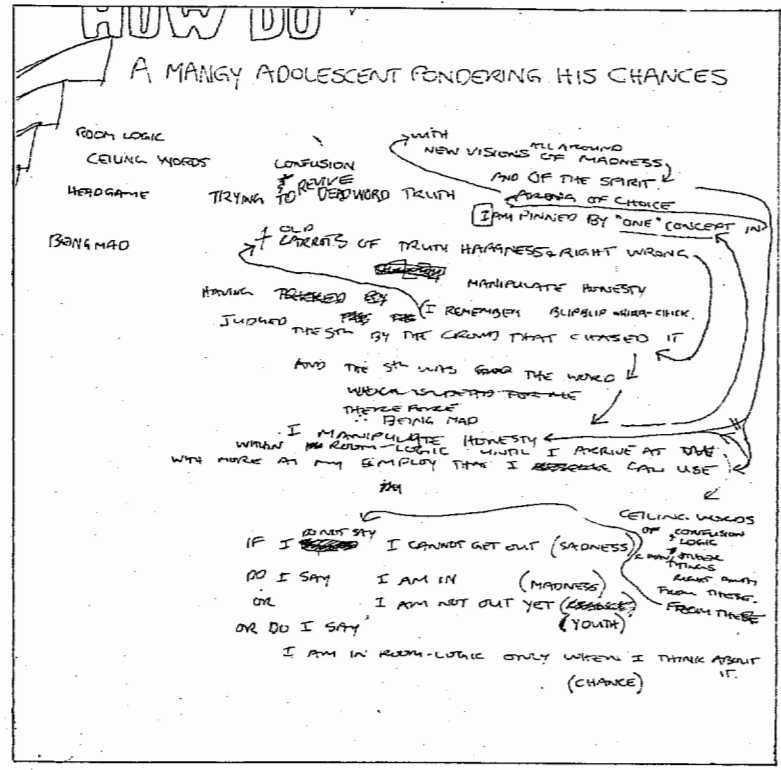 HOW DO
A MANGY ADOLESCENT PONDERING HIS CHANCES
ROOM LOGIC
CEILING WORDS
HEADGAME
BEING MAD
CONFUSION
& REVIVE
TRYING TO DEADWORD TRUTH
WITH
ALL AROUND
NEW VISIONS OF MADNESS
AND OF THE SPIRIT
OF CHOICE
I AM PINNED BY "ONE" CONCEPT IN
OLD
CARROTS OF TRUTH HAPPNESS & RIGHT WRONG
MANIPULATE HONESTY
HAVING
(I REMEMBER BLIPBLIP CHICK.
JUDGED
THE 5TH BY THE CROWD THAT CHASED IT
AND THE 5TH WAS THE WORD
WHICH IS DEAD FOR ME
THEREFORE
∴ BEING MAD
I MANIPULATE HONESTY
WITHIN ROOM-LOGIC UNTIL I ARRIVE AT
WITH MORE AT MY EMPLOY THAT I CAN USE
CEILING WORDS
OF CONFUSION
LOGIC
& OTHER
THINGS
RIGHT AWAY
FROM THESE.
FROM THESE
DO NOT SAY
IF I I CANNOT GET OUT (SADNESS)
DO I SAY I AM IN (MADNESS)
OR I AM NOT OUT YET
OR DO I SAY (YOUTH)
I AM IN ROOM-LOGIC ONLY WHEN I THINK ABOUT
IT.
(CHANCE)